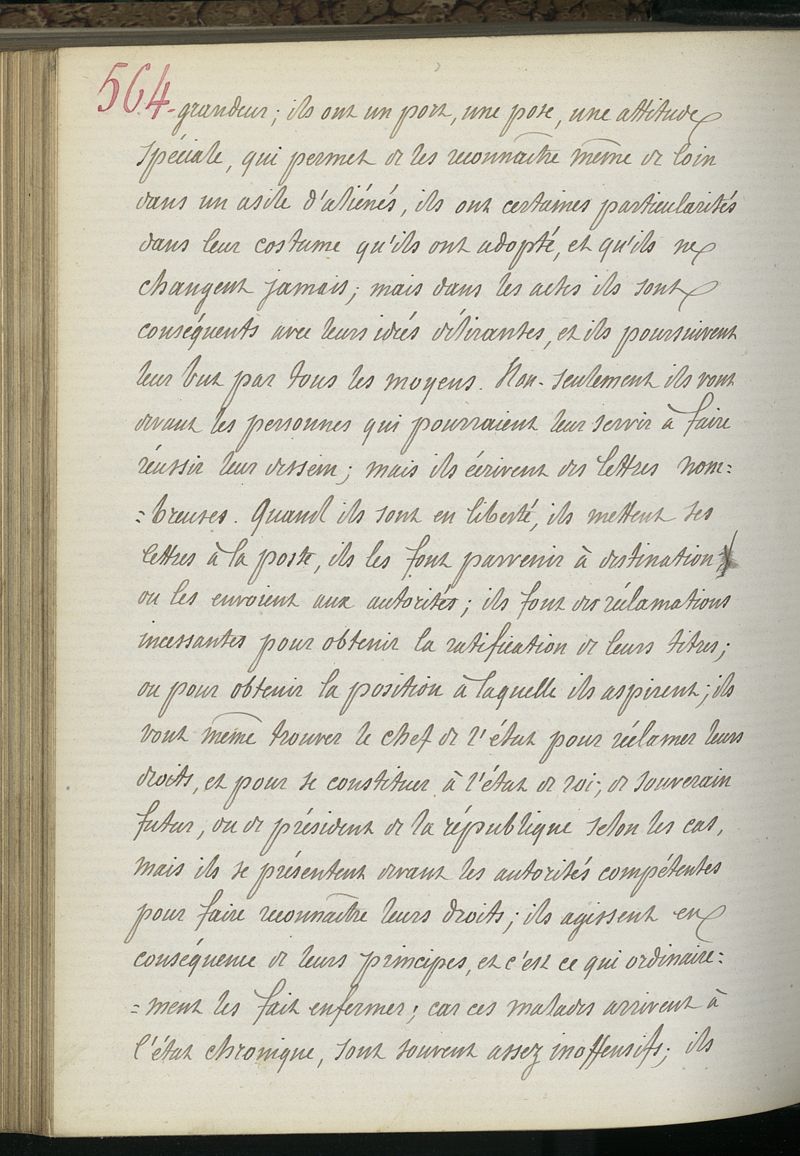 564
-grandeur; ils ont un port, une pose, une attitude
spéciale, qui permet de les reconnaître même de loin
dans un asile d'aliénés, ils ont certaines particularités
dans leur costume qu'ils ont adopté, et qu'ils ne
changent jamais; mais dans les actes ils sont
conséquents avec leurs idées délirantes, et ils poursuivent
leur but par tous les moyens. Non-seulement ils vont
devant les personnes qui pourraient leur servir à faire
réussir leur dessein; mais ils écrivent des lettres nom=
=breuses. Quand ils sont en liberté, ils mettent ses
lettres à la poste, ils les font parvenir à destination,
ou les envoient aux autorités; ils font des réclamations
incessantes pour obtenir la ratification de leurs titres;
ou pour obtenir la position à laquelle ils aspirent; ils
vont même trouver le chef de l'état pour réclamer leurs
droits, et pour se constituer à l'état de roi; de souverain
futur, ou de président de la république selon les cas,
mais ils se présentent devant les autorités compétentes
pour faire reconnaître leurs droits; ils agissent en
conséquence de leurs principes, et c'est ce qui ordinaire=
=ment les fait enfermer; car ces malades arrivent à
l'état chronique, sont souvent assez inoffensifs; ils